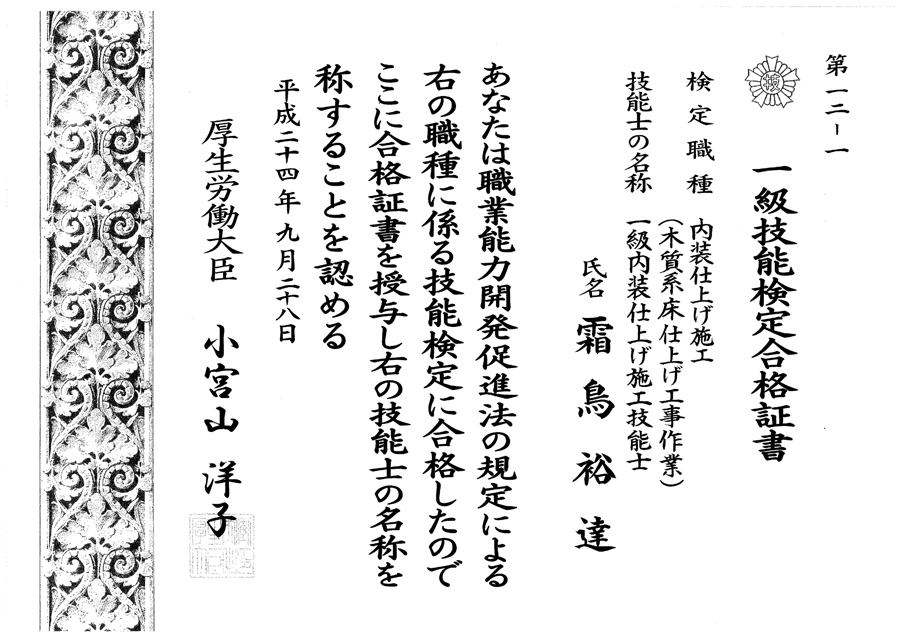 第一二ー一
一級技能検定合格証書
検定職種　内装仕上げ施工
(木質系床仕上げ工事作業)
技能士の名称　一級内装仕上げ施工技能士
氏名　霜鳥裕達
あなたは職業能力開発促進法の規定による
右の職種に係る技能検定に合格したので
ここに合格証書を授与し右の技能士の名称を
称することを認める
平成二十四年九月二十八日
厚生労働大臣　小宮山洋子